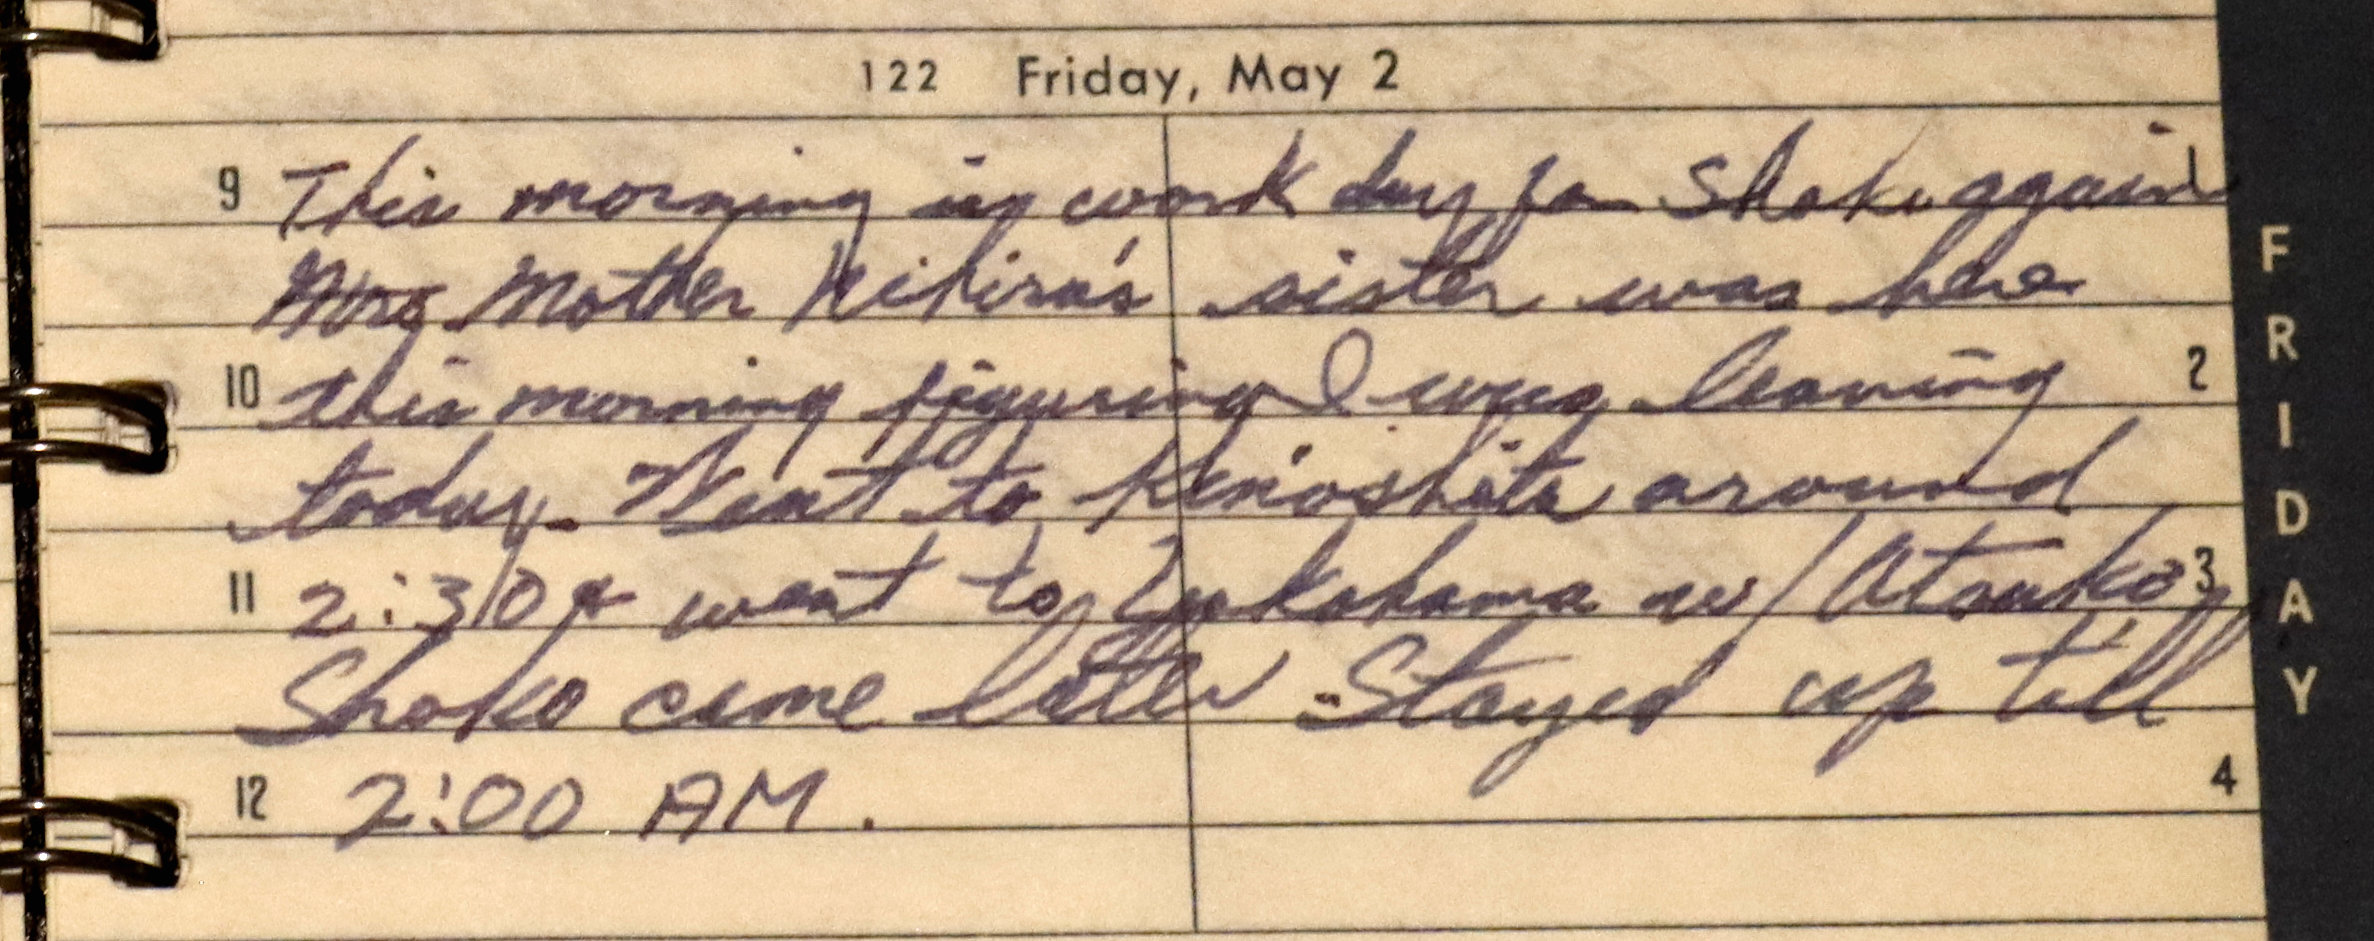 122 Friday, May 2
9 This morning is work day for Shoko again 1
Mrs Mother Kihira's sister was here
10 this morning figuring I was leaving 2
today. Went to Kinoshita around
11 2:30 & went to Yokohama w/ Atsuko, 3
Shoko came later. Stayed up till
12 2:00 AM. 4
FRIDAY